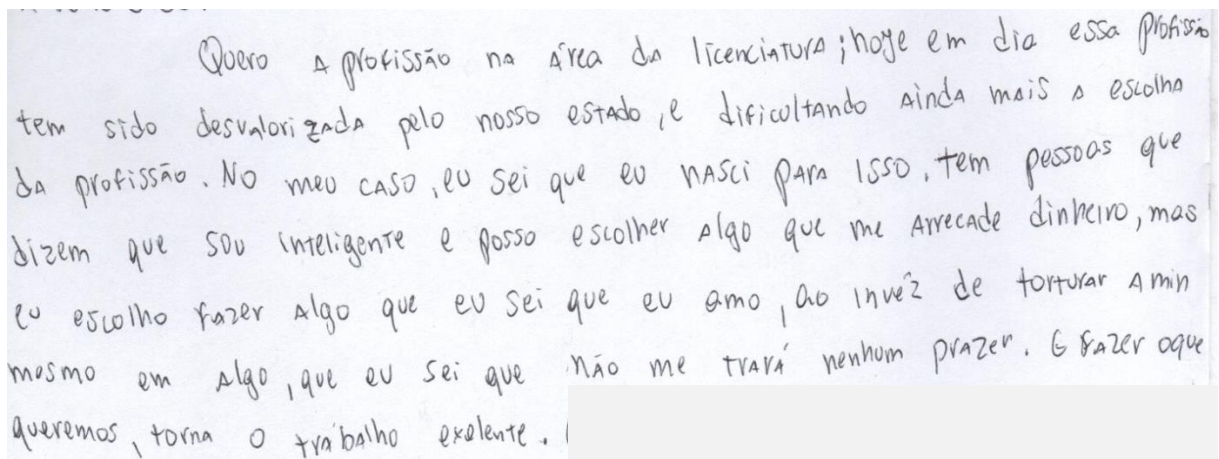 Quero a profissão na área da licenciatura; hoje em dia essa profissão
tem sido desvalorizada pelo nosso estado, e dificultando ainda mais a escolha
da profissão. No meu caso, eu sei que eu nasci para isso, tem pessoas que
dizem que sou inteligente e posso escolher algo que me arrecade dinheiro, mas
eu escolho fazer algo que eu sei que eu amo, ao invéz de torturar a min
mesmo em algo, que eu sei que não me trará nenhum prazer. E fazer oque
queremos, torna o trabalho exelente.